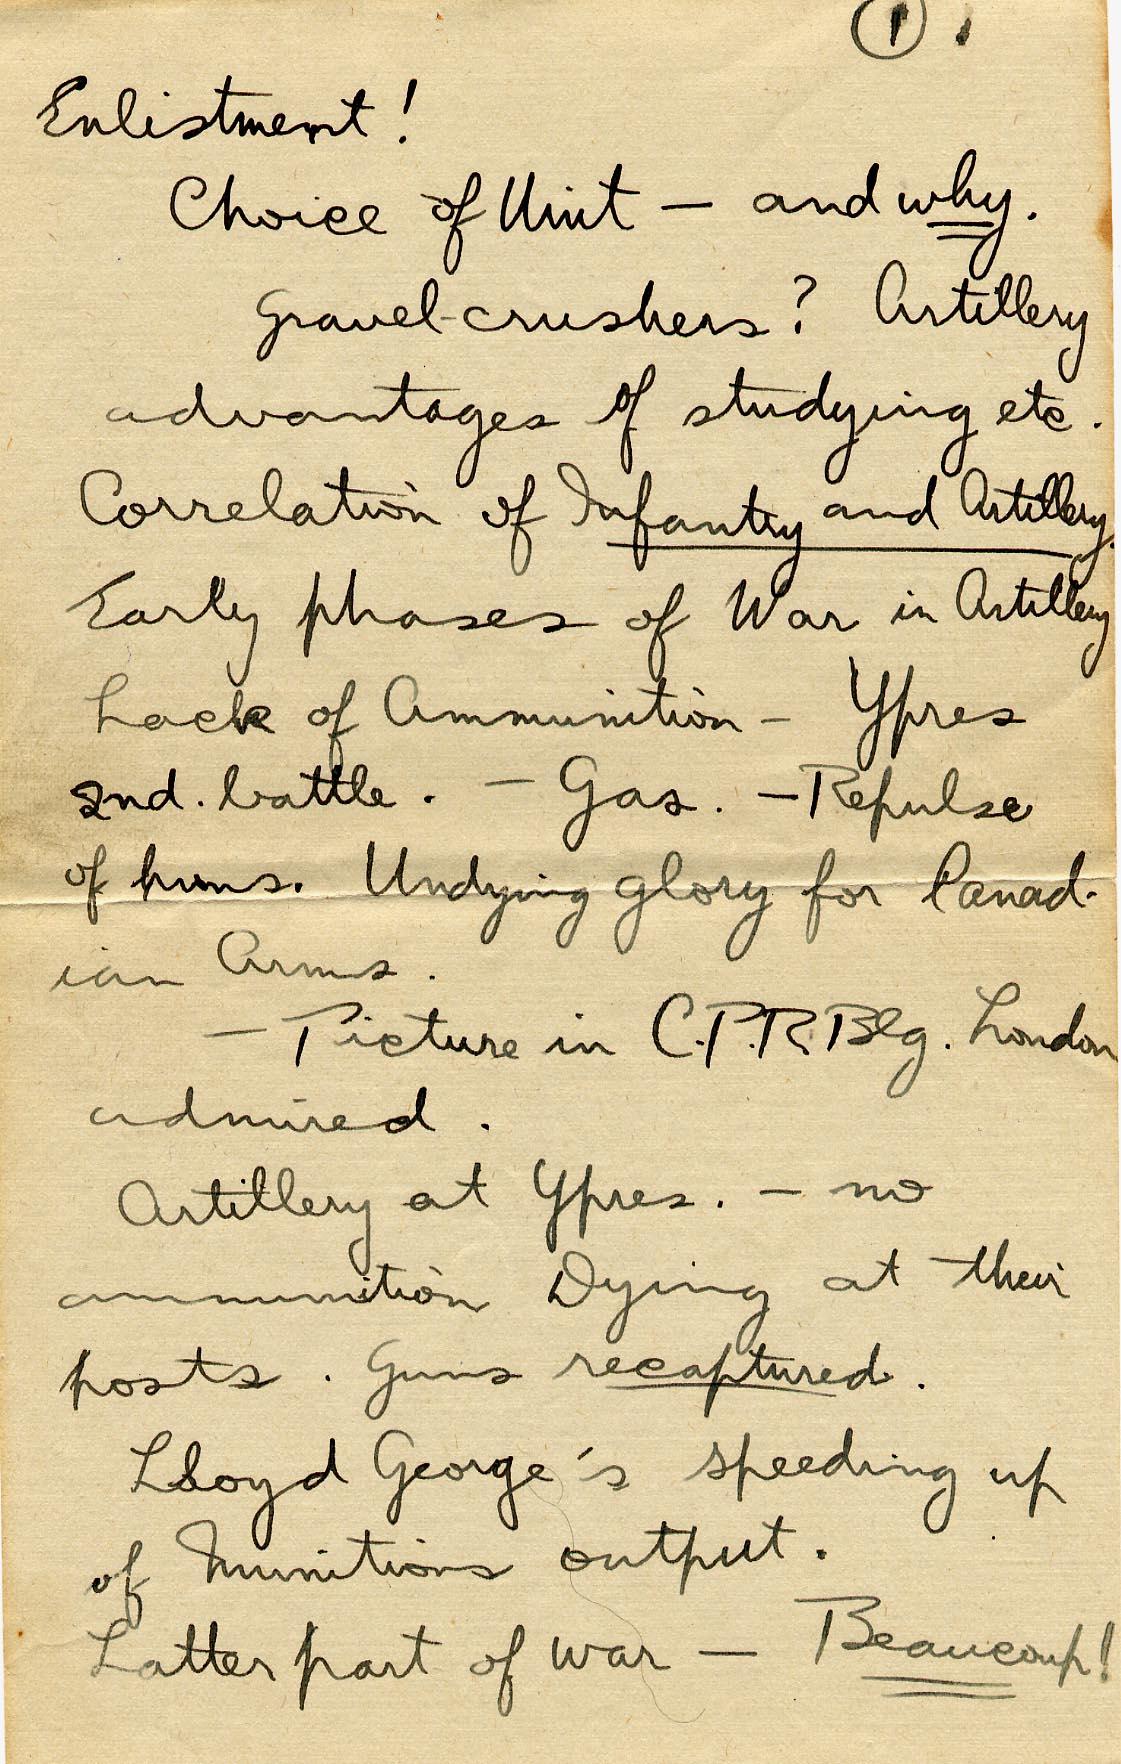 ① 1
Enlistment!
Choice of Unit — and why.
Gravel-crushers? Artillery
advantages of studying etc.
Correlation of Infantry and Artillery.
Early phases of War in Artillery
Lack of Ammunition — Ypres
2nd. battle. — Gas. — Repulse
of huns. Undying glory for Canad-
ian Arms.
— Picture in C.P.R. Blg. London
admired.
Artillery at Ypres. — no
ammunition Dying at their
posts. Guns recaptured.
Lloyd George's speeding up
of Munitions output.
Latter part of war — Beaucoup!